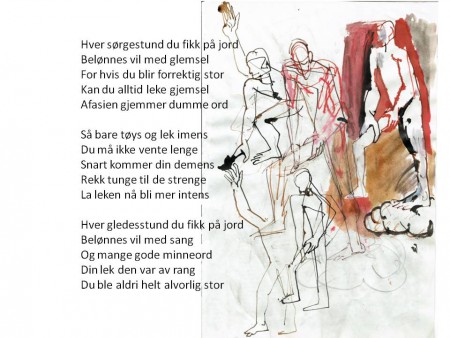 Hver sørgestund du fikk på jord
Belønnes vil med glemsel
For hvis du blir forrektig stor
Kan du alltid leke gjemsel
Afasien gjemmer dumme ord

Så bare tøys og lek imens
Du må ikke vente lenge
Snart kommer din demens
Rekk tunge til de strenge
La leken nå bli mer intens

Hver gledesstund du fikk på jord
Belønnes vil med sang
Og mange gode minneord
Din lek den var av rang
Du ble aldri helt alvorlig stor